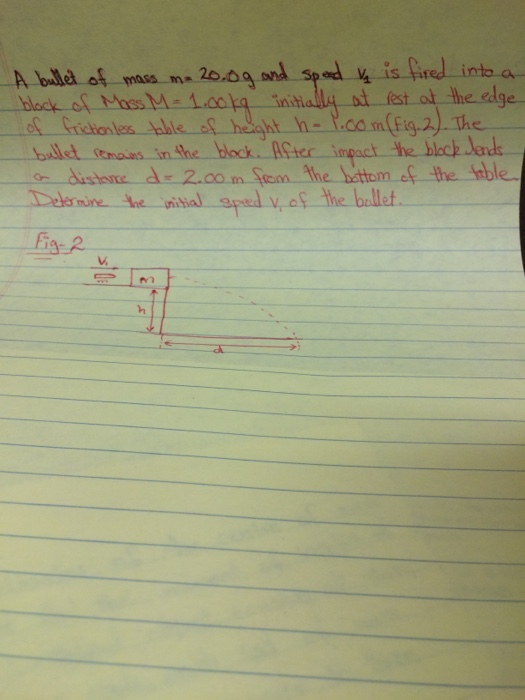 A bullet of mass m= 20.0g and speed v₁ is fired into a
block of Mass M= 1.00kg initially at rest at the edge
of frictionless table of height h= 1.00m (fig.2). The
bullet remains in the block. After impact the block lends
a distance d= 2.00 m from the bottom of the table.
Determine the initial speed v, of the bullet.
Fig-2
V₁
m
m
h
d